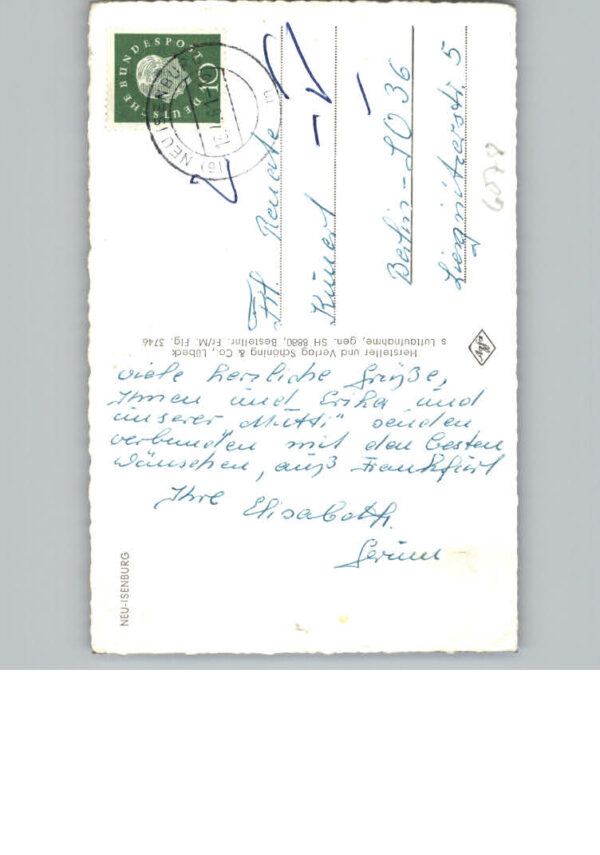 Viele herzliche Grüße,
Ihnen und Erika und
unserer „Mutti" senden
verbunden mit den besten
Wünschen, aus Frankfurt
Ihre Elisabeth
NEU-ISENBURG
Hersteller und Verlag Schöning & Co., Lübeck
s Luftaufnahme, gen. SH 8880, Bestellnr. Fr/M. Flg. 3746
DEUTSCHE BUNDESPOST
10
(16) NEU ISENBURG
Frl. Renate
Kunert
Berlin-SO 36
Liegnitzerstr. 5